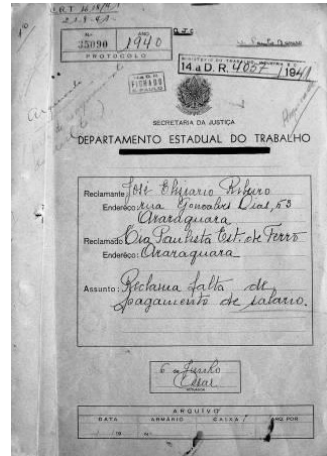 Nº ANO
35090 1940
PROTOCOLO
14.a D. R. 4007 / 1941
FICHADO
S. PAULO
SECRETARIA DA JUSTIÇA
DEPARTAMENTO ESTADUAL DO TRABALHO
Reclamante José Ribeiro
Endereço: rua Gonçalves Dias, 53
Araraquara
Reclamado Cia Paulista Est. de Ferro
Endereço: Araraquara
Assunto: Reclama falta de
pagamento de salario.
6 a Junho
Cesar
ARQUIVO
DATA ARMARIO CAIXA ARQ. POR